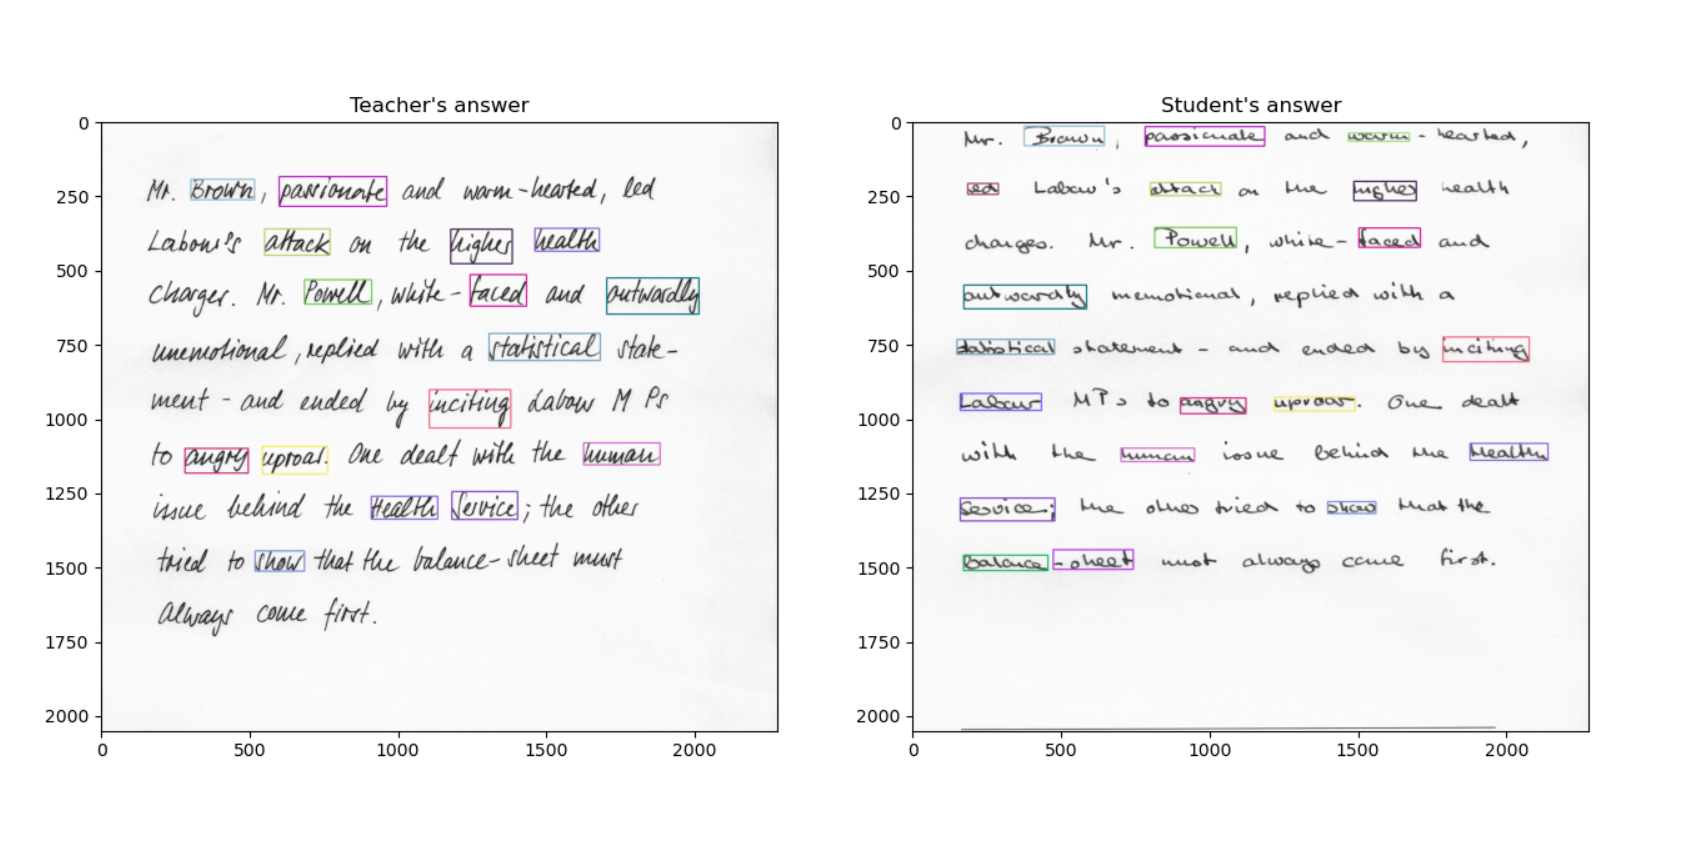 Teacher's answer
0
250
500
750
1000
1250
1500
1750
2000
0 500 1000 1500 2000
Mr. Brown, passionate and warm-hearted, led
Labour's attack on the higher health
charges. Mr. Powell, white-faced and outwardly
unemotional, replied with a statistical state-
ment - and ended by inciting Labour M Ps
to angry uproar. One dealt with the human
issue behind the Health Service; the other
tried to show that the balance-sheet must
always come first.
Student's answer
0
250
500
750
1000
1250
1500
1750
2000
0 500 1000 1500 2000
Mr. Brown, passionate and warm-hearted,
led Labour's attack on the higher health
charges. Mr. Powell, white-faced and
outwardly unemotional, replied with a
statistical statement - and ended by inciting
Labour MPs to angry uproar. One dealt
with the human issue behind the Health
Service; the other tried to show that the
balance-sheet must always come first.